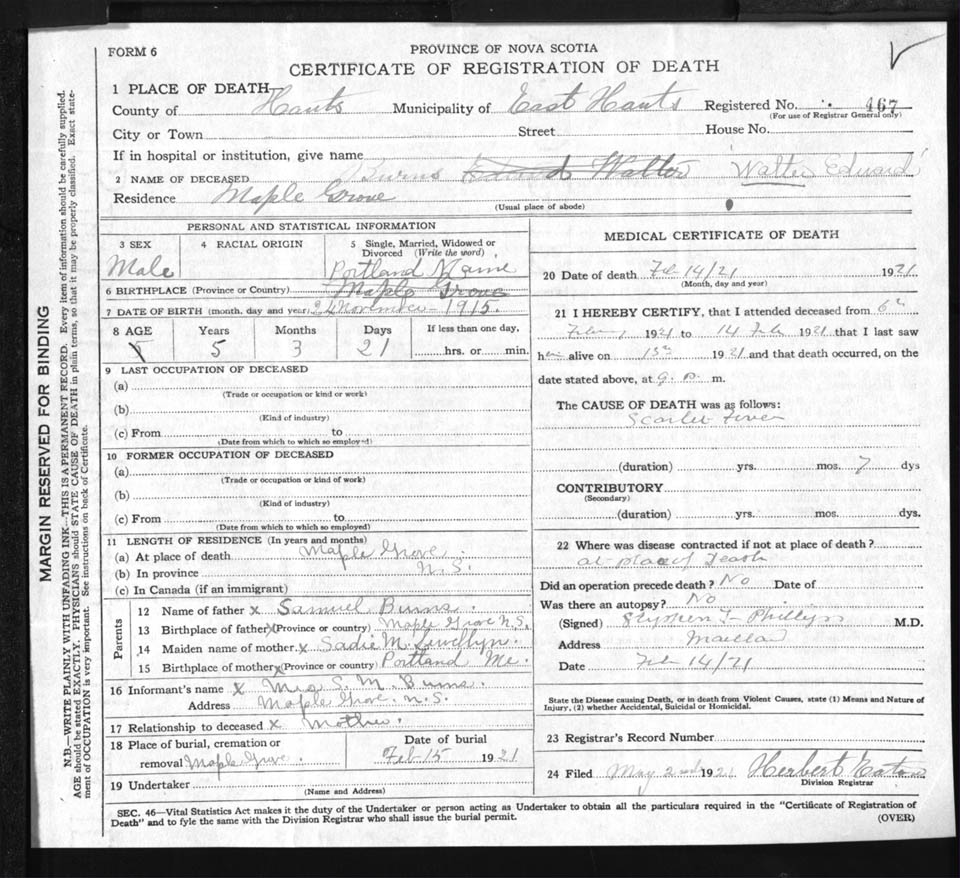 FORM 6
PROVINCE OF NOVA SCOTIA
CERTIFICATE OF REGISTRATION OF DEATH
1 PLACE OF DEATH
County of Hants Municipality of East Hants Registered No. 467
(For use of Registrar General only)
City or Town Street House No.
If in hospital or institution, give name
2 NAME OF DECEASED Burns Edward Walter 'Walter Edward'
Residence Maple Grove
(Usual place of abode)
PERSONAL AND STATISTICAL INFORMATION
3 SEX 4 RACIAL ORIGIN 5 Single, Married, Widowed or Divorced (Write the word)
Male
Portland Maine
6 BIRTHPLACE (Province or Country) Maple Grove
7 DATE OF BIRTH (month, day and year) November 1915.
8 AGE Years Months Days If less than one day,
5 5 3 21 hrs. or min.
9 LAST OCCUPATION OF DECEASED
(a)
(Trade or occupation or kind or work)
(b)
(Kind of industry)
(c) From to
(Date from which to which so employed)
10 FORMER OCCUPATION OF DECEASED
(a)
(Trade or occupation or kind of work)
(b)
(Kind of industry)
(c) From to
(Date from which to which so employed)
11 LENGTH OF RESIDENCE (In years and months)
(a) At place of death Maple Grove.
(b) In province N.S.
(c) In Canada (if an immigrant)
Parents
12 Name of father x Samuel Burns.
13 Birthplace of father x (Province or country) Maple Grove N.S.
14 Maiden name of mother x Sadie M. Lewellyn.
15 Birthplace of mother x (Province or country) Portland Me.
16 Informant's name x Mrs S. M. Burns.
Address Maple Grove. N.S.
17 Relationship to deceased x Mother.
18 Place of burial, cremation or removal Maple Grove. Date of burial Feb 15 1921
19 Undertaker
(Name and Address)
MEDICAL CERTIFICATE OF DEATH
20 Date of death Feb 14/21 1921
(Month, day and year)
21 I HEREBY CERTIFY, that I attended deceased from 6th
1921 to 14 Feb 1921 that I last saw
him alive on 13th 1921 and that death occurred, on the
date stated above, at 9 p. m.
The CAUSE OF DEATH was as follows:
Scarlet Fever
(duration) yrs. mos. 7 dys
CONTRIBUTORY
(Secondary)
(duration) yrs. mos. dys.
22 Where was disease contracted if not at place of death?
at place of Death
Did an operation precede death? No Date of
Was there an autopsy? No
(Signed) Stephen Phillips M.D.
Address Maitland
Date Feb 14/21
State the Disease causing Death, or in death from Violent Causes, state (1) Means and Nature of
Injury, (2) whether Accidental, Suicidal or Homicidal.
23 Registrar's Record Number
24 Filed May 2nd 1921 Herbert Eaton
Division Registrar
SEC. 46—Vital Statistics Act makes it the duty of the Undertaker or person acting as Undertaker to obtain all the particulars required in the "Certificate of Registration of
Death" and to fyle the same with the Division Registrar who shall issue the burial permit. (OVER)
MARGIN RESERVED FOR BINDING
N.B.—WRITE PLAINLY WITH UNFADING INK—THIS IS A PERMANENT RECORD. Every item of information should be carefully supplied.
AGE should be stated EXACTLY. PHYSICIANS should STATE CAUSE OF DEATH in plain terms, so that it may be properly classified. Exact state-
ment of OCCUPATION is very important. See instructions on back of Certificate.